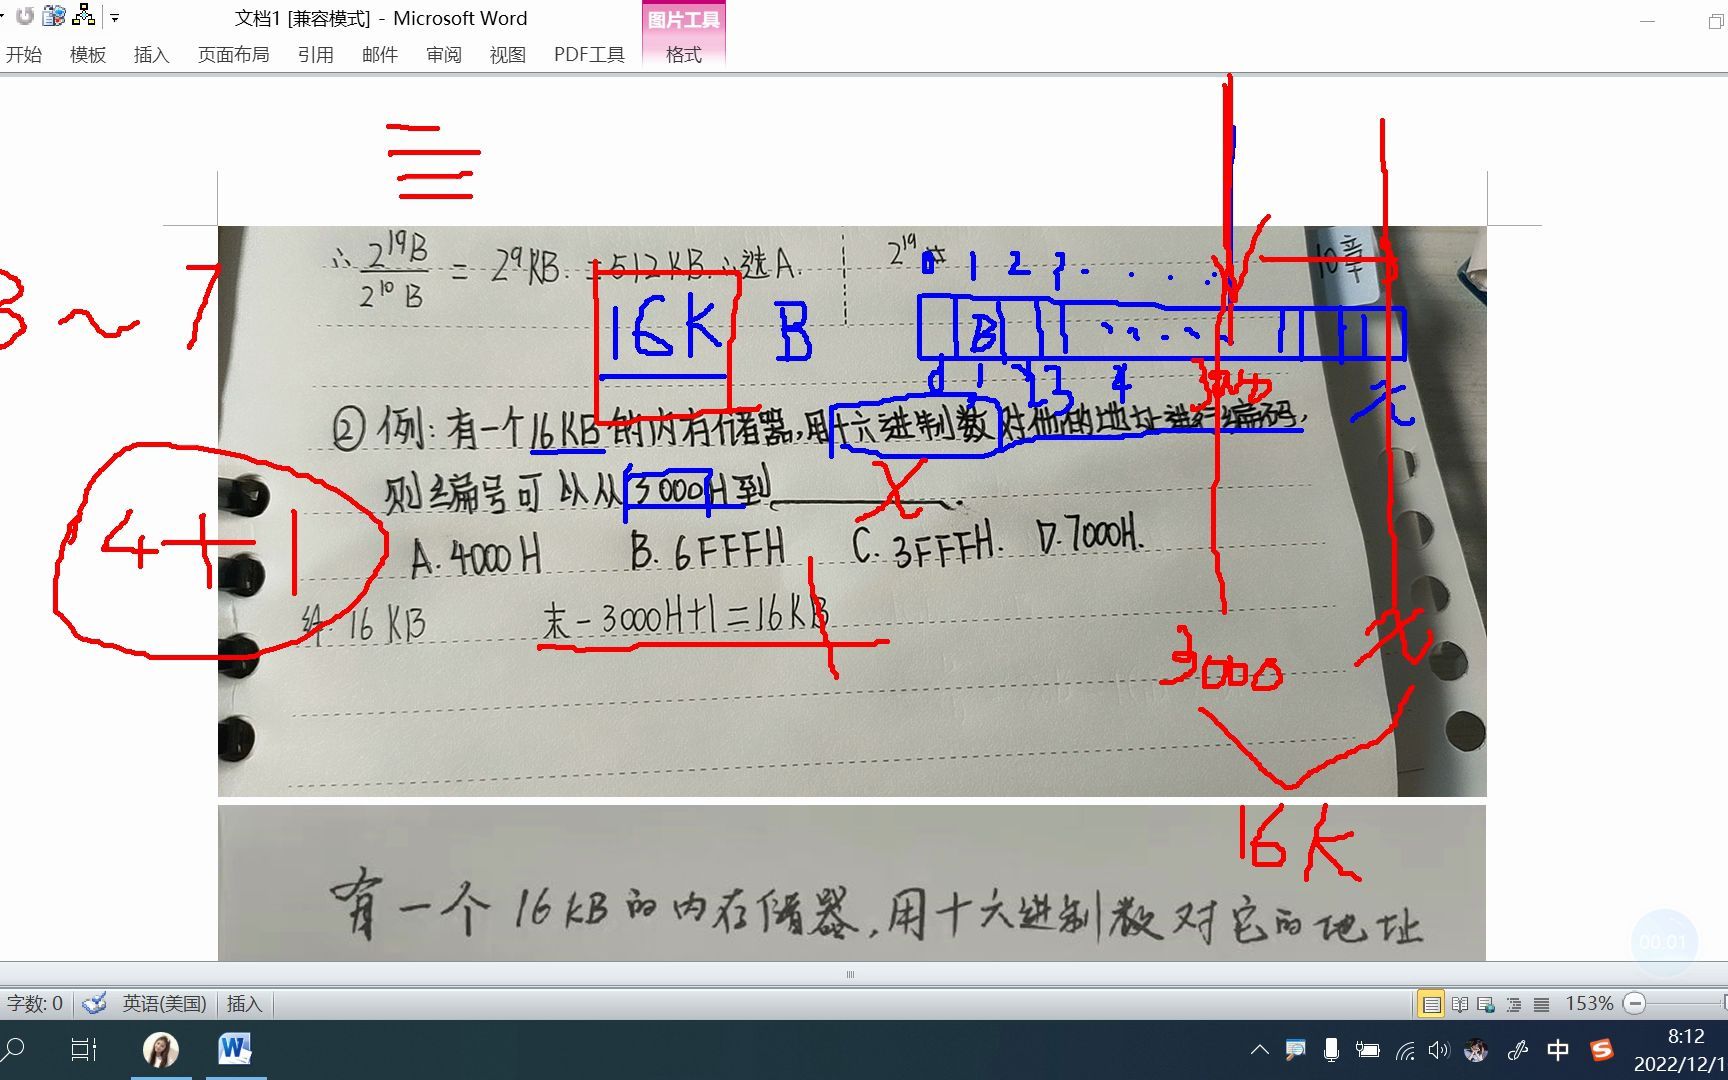 文档1 [兼容模式] - Microsoft Word
图片工具
开始 模板 插入 页面布局 引用 邮件 审阅 视图 PDF工具 格式
3~7
∴ 2¹⁹B / 2¹⁰B = 2⁹KB. = 512KB ∴选A.
2¹⁹
0 1 2 3 . . . .
10章
16K B
B
0 1 2 3 4
x
② 例: 有一个16KB的内存储器,用十六进制数对他的地址进行编码,
则编号可以从3000H到________.
4+1
A.4000H B.6FFFH C.3FFFH. D.7000H.
16KB 末-3000H+1=16KB
3000 x
16K
有一个16KB的内存储器,用十六进制数对它的地址
00:01
字数: 0 英语(美国) 插入 153%
中
8:12
2022/12/1